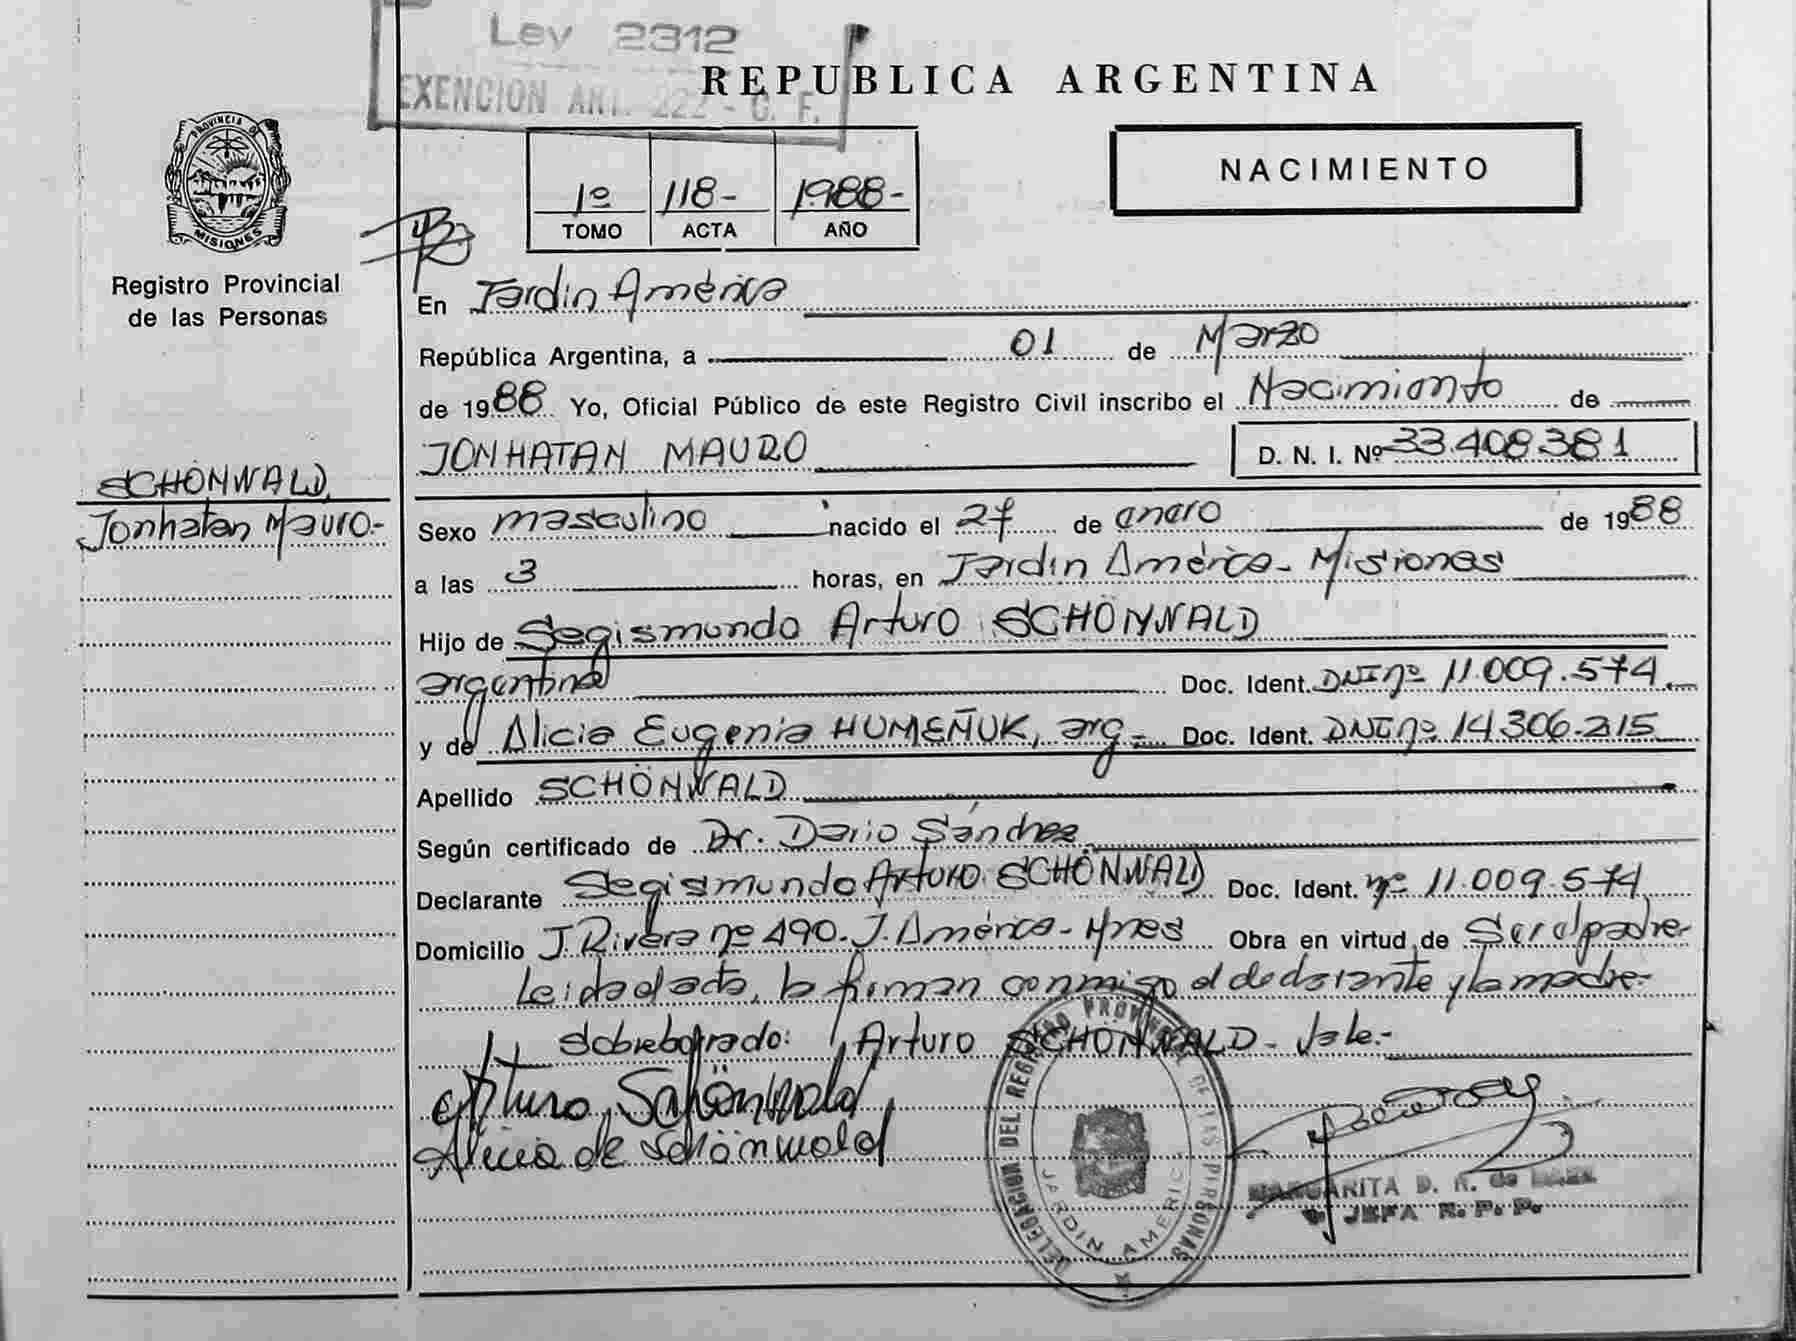 Ley 2312
EXENCION ART. 222 - C. F.
REPUBLICA ARGENTINA
NACIMIENTO
1º 118- 1988-
TOMO ACTA AÑO
PROVINCIA DE
MISIONES
Registro Provincial
de las Personas
SCHÖNWALD
Jonhatan Mauro.-
En Jardín América
República Argentina, a 01 de Marzo
de 1988 Yo, Oficial Público de este Registro Civil inscribo el Nacimiento de
JONHATAN MAURO D. N. I. Nº 33.408.381
Sexo masculino nacido el 27 de enero de 1988
a las 3 horas, en Jardín América - Misiones
Hijo de Segismundo Arturo SCHÖNWALD
argentina Doc. Ident. DNI nº 11.009.574
y de Alicia Eugenia HUMEÑUK, arg.- Doc. Ident. DNI nº 14.306.215
Apellido SCHÖNWALD
Según certificado de Dr. Dario Sánchez
Declarante Segismundo Arturo SCHÖNWALD Doc. Ident. nº 11.009.574
Domicilio J. Rivera nº 490. J. América - Mnes Obra en virtud de Ser el padre
Leída el acta, la firman conmigo el declarante y la madre.-
Sobreborrado: Arturo SCHÖNWALD - Vale.-
Arturo Schönwald
Alicia de Schönwald
DELEGACION DEL REGISTRO PROVINCIAL DE LAS PERSONAS
JARDIN AMERICA
MARGARITA D. R. de
JEFA R. P. P.